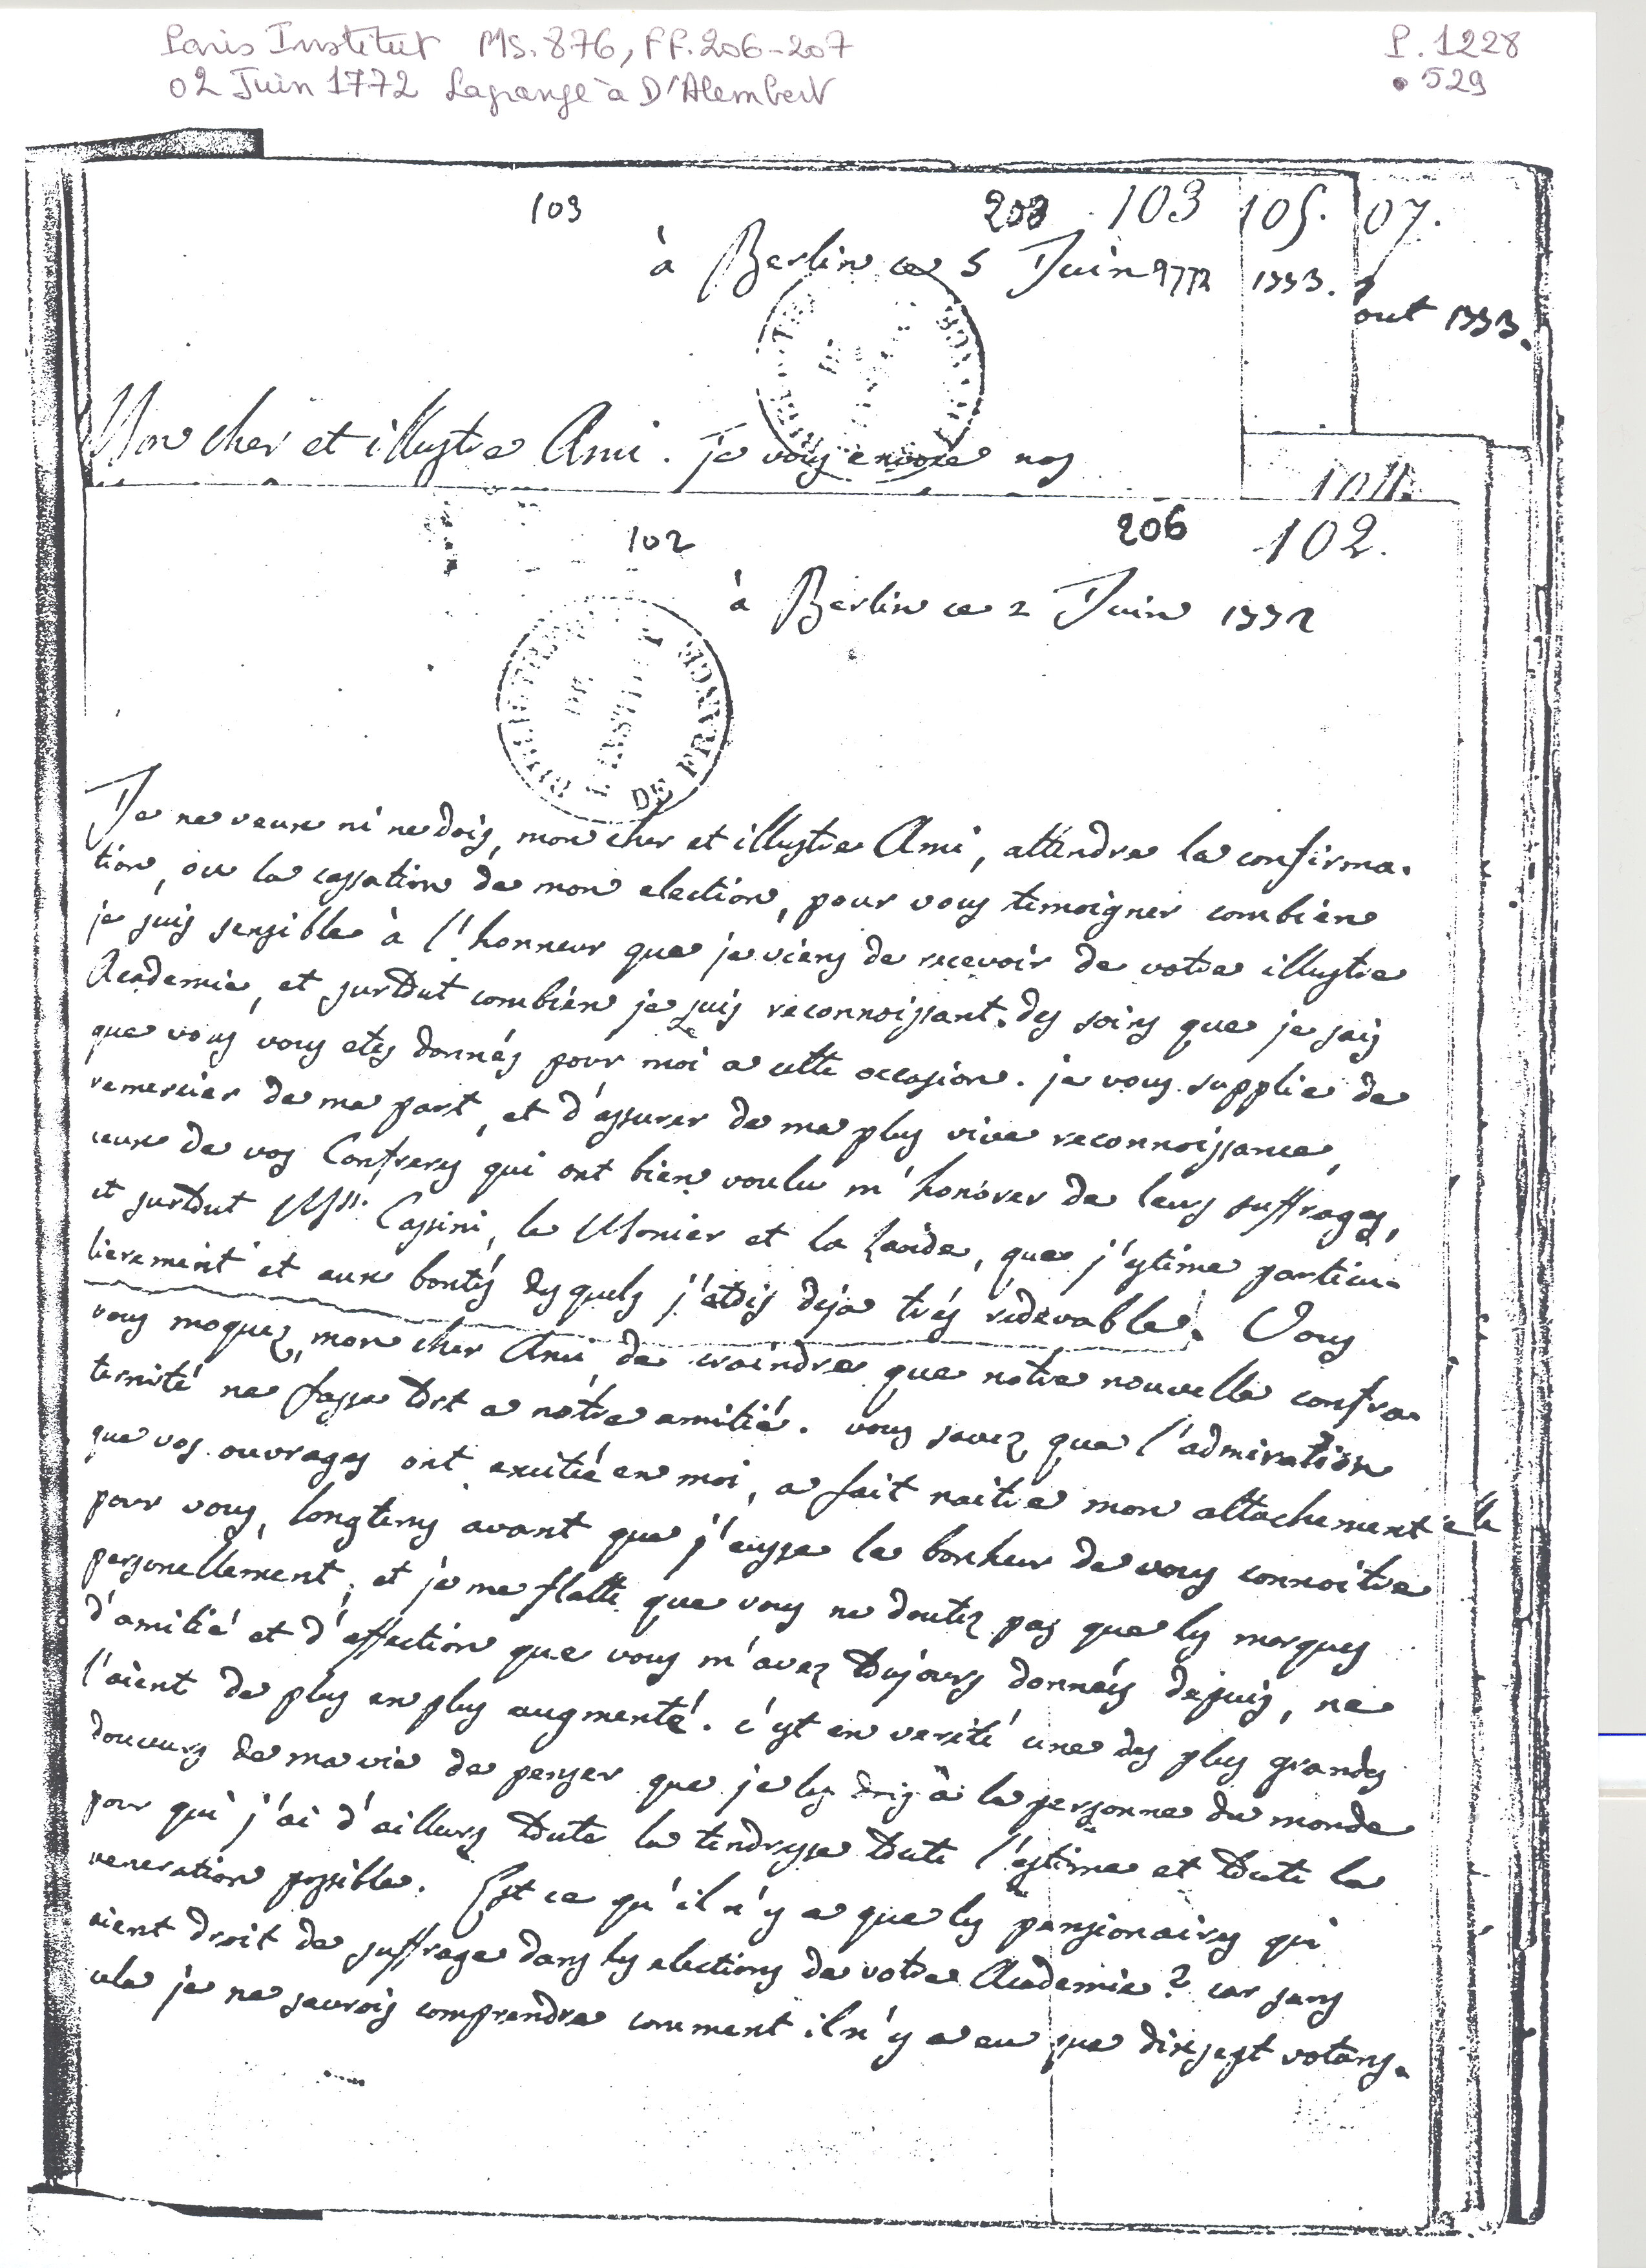 Paris Institut MS. 876, FF. 206-207
P. 1228
02 Juin 1772 Lagrange à D'Alembert
529
103
208 103 105. 107.
à Berlin ce 5 Juin 1772 1773.
out 1773.
Mon cher et illustre Ami. je vous envoie nos
104.
102
206 102.
à Berlin ce 2 Juin 1772
BIBLIOTHEQUE DE L'INSTITUT DE FRANCE
Je ne veux ni ne dois, mon cher et illustre Ami, attendre la confirma-
tion, ou la cassation de mon election, pour vous temoigner combien
je suis sensible à l'honneur que je viens de recevoir de votre illustre
Academie, et surtout combien je suis reconnoissant des soins que je sais
que vous vous etes donnés pour moi a cette occasion. je vous supplie de
remercier de ma part, et d'assurer de ma plus vive reconnoissance,
ceux de vos Confreres qui ont bien voulu m'honorer de leurs suffrages,
et surtout Mss. Cassini, le Monier et la Lande, que j'estime particu-
lierement et aux bontés desquels j'étois deja trés redevable. Vous
vous moquez, mon cher Ami, de craindre que notre nouvelle confra-
ternité ne fasse tort a nôtre amitié. vous savez que l'admiration
que vos ouvrages ont excitée en moi, a fait naitre mon attachement
pour vous, longtems avant que j'eusse le bonheur de vous connoitre
personellement; et je me flatte que vous ne doutez pas que les marques
d'amitié et d'affection que vous m'avez toujours donnés depuis, ne
l'aient de plus en plus augmenté. c'est en verité une des plus grandes
douceurs de ma vie de penser que je les dois à la personne du monde
pour qui j'ai d'ailleurs toute la tendresse toute l'estime et toute la
veneration possible. Est ce qu'il n'y a que les pensionaires qui
aient droit de suffrage dans les elections de votre Academie? car sans
cela je ne saurois comprendre comment il n'y a eu que dixsept votans.